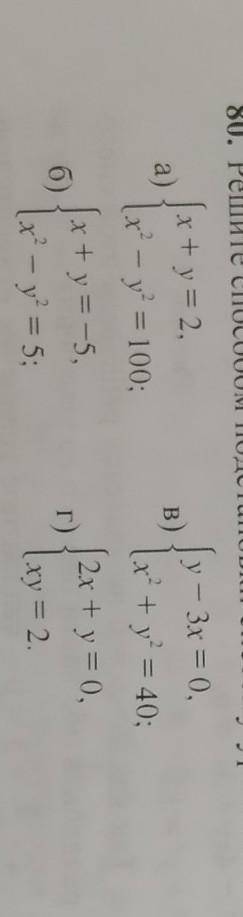 80. Решите способом
а) { x + y = 2,
x² − y² = 100;
б) { x + y = −5,
x² − y² = 5;
в) { y − 3x = 0,
x² + y² = 40;
г) { 2x + y = 0,
xy = 2.